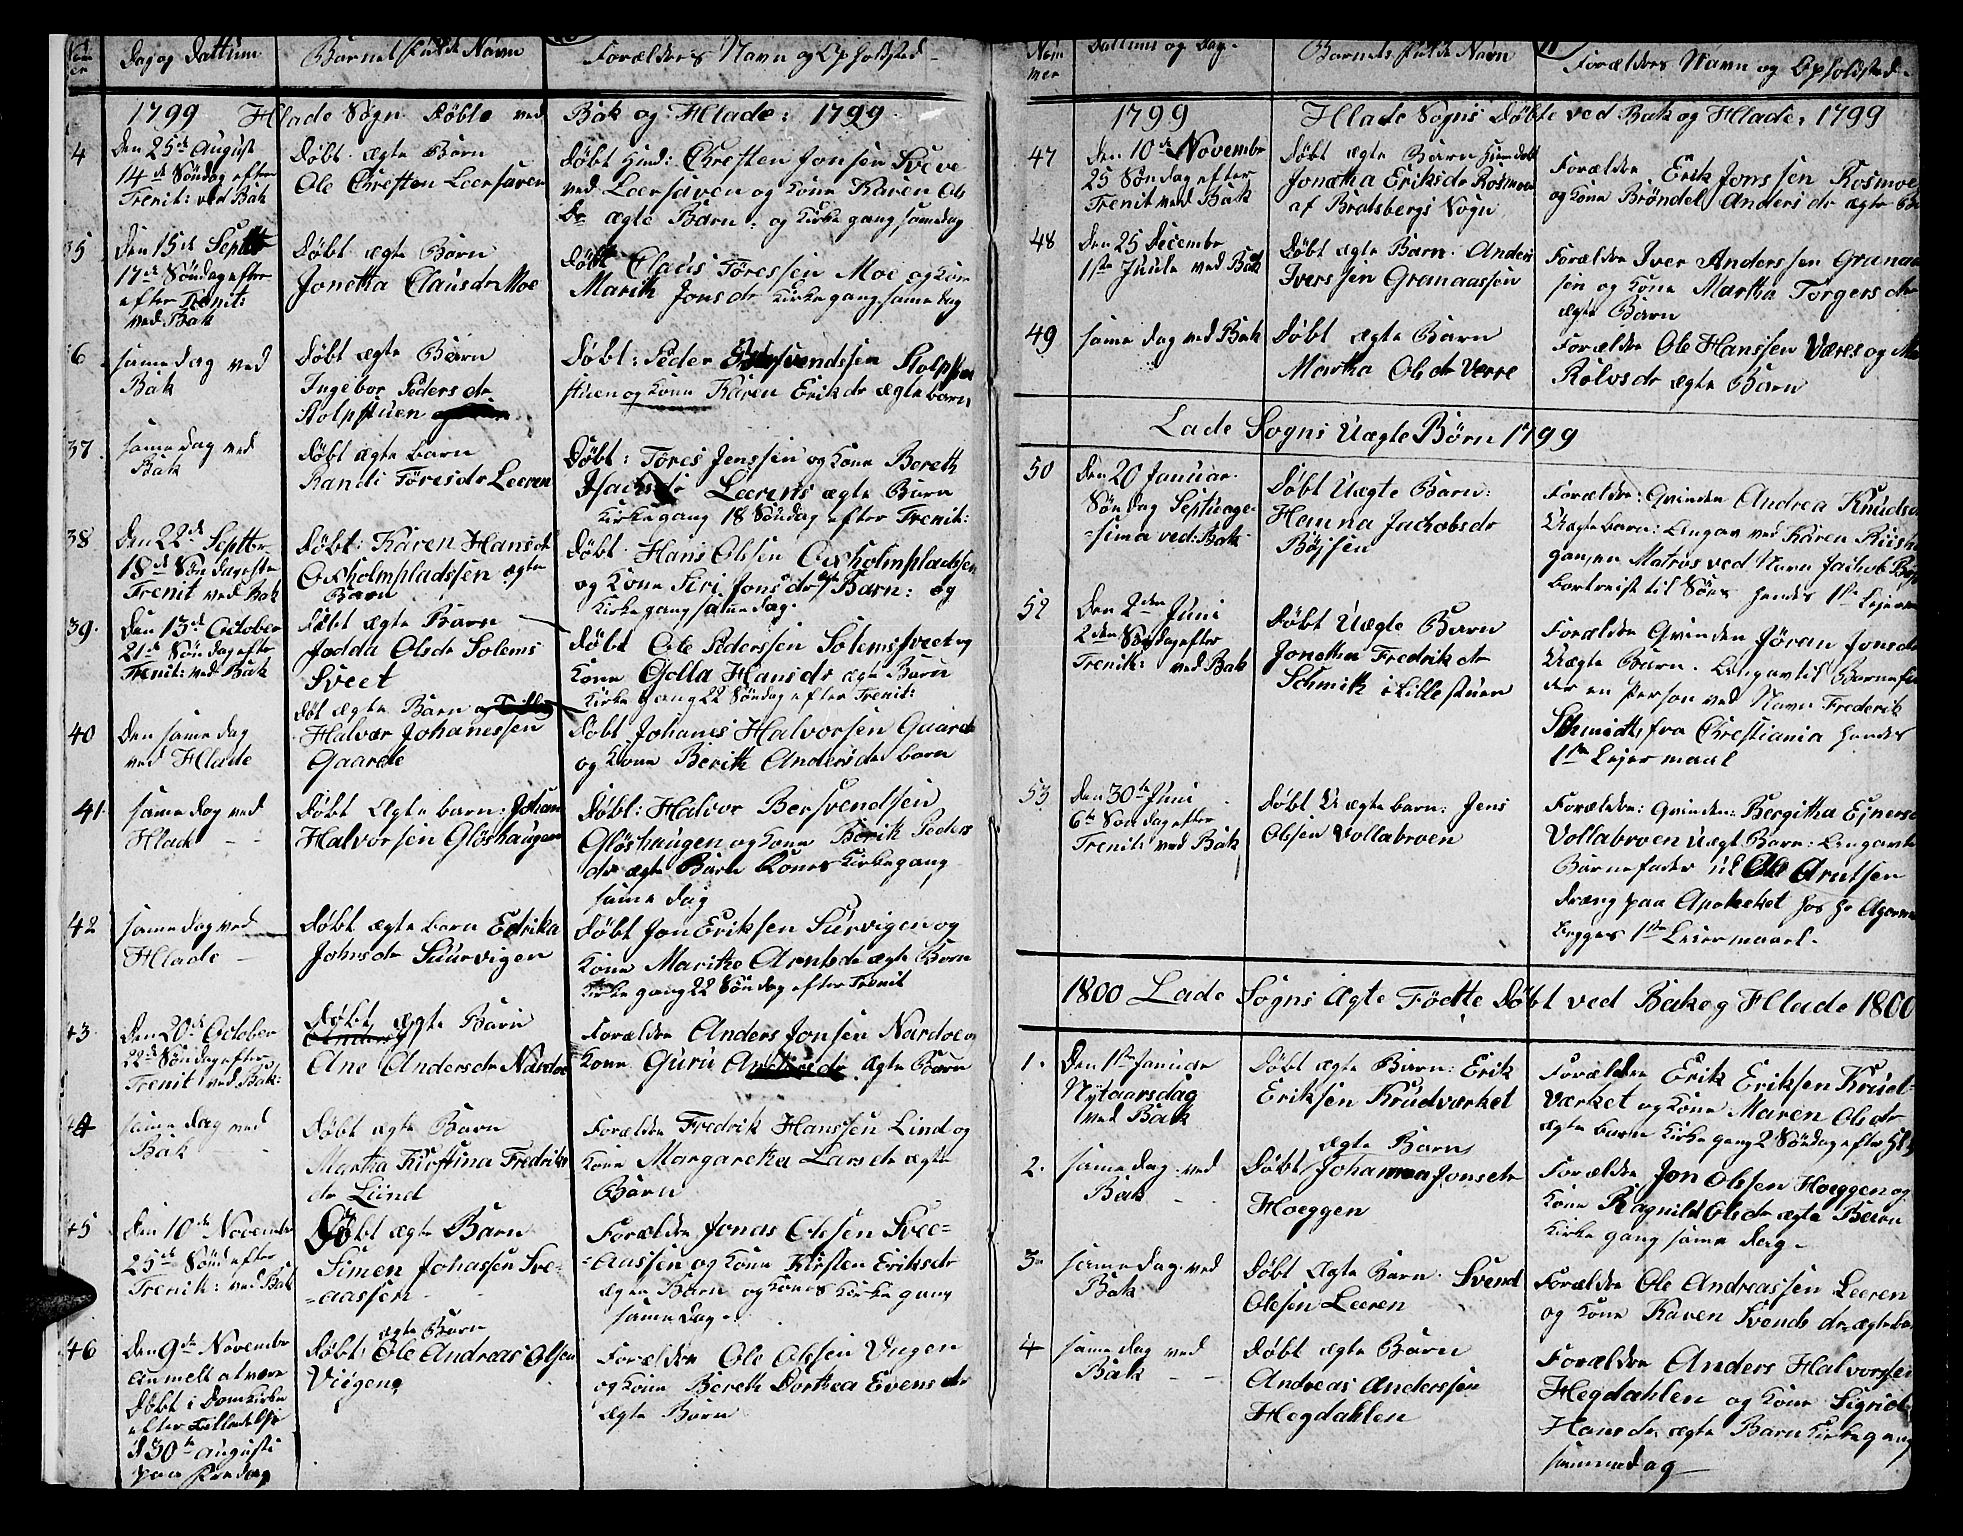 Dag og Dattum
Barnets fulde Navn
Forældres Navn og Opholdsted
1799 Hlade Sogn Døbte ved Bak og Hlade: 1799
4
Den 25de August
14de Søndag efter
Trenit: ved Bak
Døbt ægte Børn
Ole Chresten Leersaven
Døbt Hind: Chresten Jonsen Sveve
ved Leersaven og Kone Karen Ols
Dr ægte Barn: og Kirkegang samedag
35
Den 15de Septbr
17de Søndag efter
efter Trenit:
ved Bak
Døbt ægte Børn
Jonetha Clausdr Moe
Døbt ClausFøressen Moe og Kone
Marith Jonsdr Kirkegang same dag
36
same dag ved
Bak
Døbt ægte Børn
Ingebor Peders dr
Stolpstuen
Døbt: Peder svendssen Stolpsen
stuen og Kone Karen Erik dr ægte barn
37.
same dag ved
Bak
Døbt ægte barn
Randi Töresdr Leeren
Døbt: Töres Jenssen og Kone Bereth
Leerens ægte Barn
Kirkegang 18 Søndag efter Trenit:
38
Den 22de Septbr
18de Søndag efter
Trenit ved Bak
Døbt: Karen Hansdr
Oxholmpladssen ægte
Barn
Døbt Hans Olsen Oxholmpladssen
og Kone Siri Jonsdr ægte Barn: og
Kirkegang same dag.
39.
Den 13de October
21de Søndag efter
Trenit: ved Bak
Døbt ægte Barn
Jodda Olsdr Solems
Sveet
Døbt Ole Pederssen Solemssveet og
Kone Golla Hansdr ægte Barn
Kirkegang 22 Søndag efter Trenit:
40
Den same dag
ved Hlade
Døbt ægte Barn
Halvær Johanessen
Gaarde
Døbt Johanes Halvorsen Gaarde
og Kone Berith Andersdr barn
41.
same dag ved
Hlade
Døbt ægte barn: Johan
Halvorsen Glöshaugen
Døbt: Halvor Bersvendsen
Glöshaugen og Kone Berith Peders
dr ægte Barn Kones Kirkegang
same dag
42
same dag ved
Hlade
Døbt ægte barn Edrika
Johnsdr Suurvigen
Døbt Jon Eriksen Survigen og
Kone Marithe Arntsdr ægte Barn
Kirkegang 22 Søndag efter Trenit
43.
Den 20de October
22de Søndag efter
Trenit ved Bak:
Døbt ægte Barn
Ane Andersdr Nardoe
Forældre Anders Jonsen Nardoe og
Kone Guru Andersdr ægte Barn
44
same dag ved
Bak
Døbt ægte Barn
Martha Fredriks
dr Lund
Forældre Fredrik Hanssen Lind og
Kone Margaretha Larsdr ægte
Barn
45
Den 10de November
25de Sønd efter
Trenit: ved Bak
Døbt ægte Barn
Simen Johassen Sve-
-aassen
Forældre Jonas Olssen Svee-
-aassen og Kone Kirsten Eriksdr
ægte Barn og Kones Kirkegang
same dag.
46
Den 9de November
anmelt at være
Døbt i Domkirke
efter Tilladelse
30te Augusti
paa Fredag
ægte Barn
Døbt: Ole Andreas Olsen
Viigen
Forældre Ole Olssen Vugen
og Kone Bereth Dorthea Evensdr
ægte Barn
Num
mer
Dattums og Dag.
Barnets fulde Navn
11
Forældres Navn og Opholdsted.
1799 Hlade Sogns Døbte ved Bak og Hlade, 1799
47
Den 10de Novembr
25 Søndag efter
Trenit ved Bak
Døbt ægte Barn Hiemdøbt
Jonetha Eriksdr Rosmoe
af Bratsbergs Sogn
Forældre Erik Jonssen Rosmoe
og Kone Bröndel Anders dr ægte
48
Den 25 Decembr
1ste Juule ved Bak
Døbt ægte Barn. Anders
Iverssen Granaassen
Forældre Iver Anderssen Granaa
sen og Kone Martha Torgersdr
ægte Barn
49
same dag ved Bak
Døbt ægte Barn
Martha Olsdr Verre
Forældre Ole Hanssen Væres og
Rolvsdr ægte Barn
Lade Sogns Uægte Børn 1799
50
Den 20 Januar.
Søndag Septuage-
-sima ved: Bak
Døbt Uægte Barn:
Hemna Jackobsdr
Böjsen
Forældre: Qvinden Andrea Knudsd
Uægte barn: Angav ved Karen
gan, en Matros ved Navn Jackob
bortreist til Søes hendes 1ste Lejerm
52
Den 2den Juni
2den Søndag efter
Trenit: ved Bak
Døbt Uægte Barn
Jonetha Fredrik dr
Schmith i Lillestuen
Forældre Qvinden Jöran Jonsdr
Uægte Barn. Angav til Barnefa
der en Person ved Navn Frederik
Schmidt, fra Chrestiania hendes
1ste Lejermaal
53
Den 30te Juni
6te Søndag efter
Trenit: ved Bak
Døbt Uægte barn: Jens
Olsen Vollabroen
Forældre: Qvinden: Bergitha Ejners
Vollabroen Uægt Barn: Angav
Barnefader til Ole Arntsen
dreng paa Apotheket hos Hr
begges 1ste Leiermaal.
1800 Lade Sogns Ægte Födte Døbt ved Bak og Hlade 1800
1.
Den 1ste Januar
Nytaarsdag
ved Bak
Døbt ægte Barn: Erik
Eriksen Krudværket
Forældre Erik Eriksen Krud-
Værket og Kone Maren Olsdr
ægte barn Kirkegang 2 Söndag efter
2.
same dag. ved
Bak
ægte Barn
Døbt Johanna Jonsdr
Hoeggen
Forældre Jon Olssen Hoeggen og
Kone Ragnild Olsdr ægte Barn
Kirkegang same dag.
3.
same dag. ved
Bak
Døbt Ægte Barn. Svend
Olesen Leeren
Forældre Ole Andreassen Leeren
og Kone Karen Svends dr ægte ba
4
same dag ved
Bak
Døbt ægte Barn
Andreas Anderssen
Hegdahlen
Forældre Anders Halvorsen
Hegdahlen og Kone Sigrid
Hansdr ægte Barn Kirkegang
sammedag